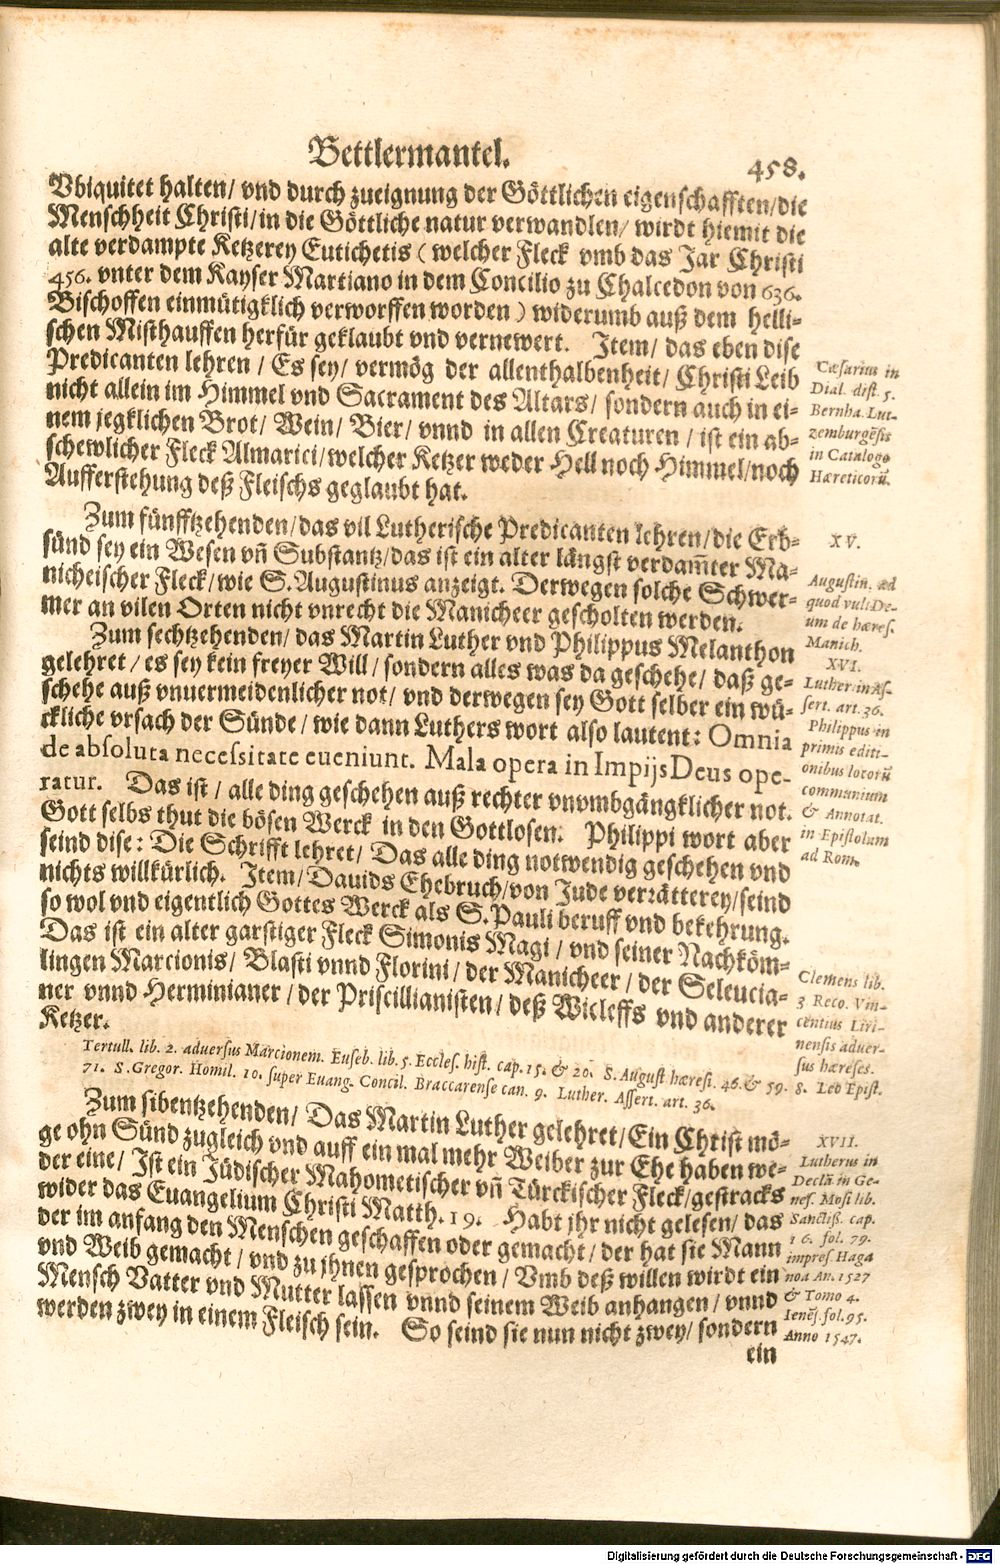 Bettlermantel.
458.
Vbiquitet halten/ vnd durch zueignung der Göttlichen eigenschafften/die
Menschheit Christi/in die Göttliche natur verwandlen/ wirdt hiemit die
alte verdampte Ketzerey Eutichetis ( welcher Fleck vmb das Jar Christi
456. vnter dem Kayser Martiano in dem Concilio zu Chalcedon von 636.
Bischoffen einmütigklich verworffen worden ) widerumb auß dem helli-
schen Misthauffen herfür geklaubt vnd vernewert. Item/ das eben dise
Predicanten lehren / Es sey/ vermög der allenthalbenheit/ Christi Leib
nicht allein im Himmel vnd Sacrament des Altars/ sondern auch in ei-
nem jegklichen Brot/ Wein/ Bier/ vnnd in allen Creaturen / ist ein ab-
schewlicher Fleck Almarici/welcher Ketzer weder Hell noch Himmel/noch
Aufferstehung deß Fleischs geglaubt hat.
Cæsarius in
Dial. dist. 5.
Bernha. Lut-
zemburgẽsis
in Catalogo
Hæreticorũ.
Zum fünfftzehenden/das vil Lutherische Predicanten lehren/die Erb-
sünd sey ein Wesen vñ Substantz/das ist ein alter längst verdam̃ter Ma-
nicheischer Fleck/wie S. Augustinus anzeigt. Derwegen solche Schwer-
mer an vilen Orten nicht vnrecht die Manicheer gescholten werden.
XV.
Augustin. ad
quod vult De-
um de hæres.
Manich.
Zum sechtzehenden/ das Martin Luther vnd Philippus Melanthon
gelehret / es sey kein freyer Will / sondern alles was da geschehe/ daß ge-
schehe auß vnuermeidenlicher not/ vnd derwegen sey Gott selber ein wü-
rckliche vrsach der Sünde/ wie dann Luthers wort also lautent: Omnia
de absoluta necessitate eueniunt. Mala opera in Impijs Deus ope-
ratur. Das ist / alle ding geschehen auß rechter vnvmbgängklicher not.
Gott selbs thut die bösen Werck in den Gottlosen. Philippi wort aber
seind dise: Die Schrifft lehret/ Das alle ding notwendig geschehen vnd
nichts willkürlich. Item/ Dauids Ehebruch/von Jude verrätterey/seind
so wol vnd eigentlich Gottes Werck als S. Pauli beruff vnd bekehrung.
Das ist ein alter garstiger Fleck Simonis Magi / vnd seiner Nachköm-
lingen Marcionis/ Blasti vnnd Florini/ der Manicheer/ der Seleucia-
ner vnnd Herminianer / der Priscillianisten/ deß Wicleffs vnd anderer
Ketzer.
XVI.
Luther in As-
sert. art. 36.
Philippus in
primis editi-
onibus locorũ
communium
& Annotat.
in Epistolam
ad Rom.
Clemens lib.
3 Reco. Vin-
centius Liri-
nensis aduer-
sus hæreses.
Tertull. lib. 2. aduersus Marcionem. Euseb. lib. 5. Eccles. hist. cap. 15. & 20. S. August hæresi. 46. & 59. 8. Leo Epist.
71. S. Gregor. Homil. 10. super Euang. Concil. Braccarense can. 9. Luther. Assert. art. 36.
Zum sibentzehenden/ Das Martin Luther gelehret/Ein Christ mö-
ge ohn Sünd zugleich vnd auff ein mal mehr Weiber zur Ehe haben we-
der eine/ Ist ein Jüdischer Mahometischer vñ Türckischer Fleck/gestracks
wider das Euangelium Christi Matth. 19. Habt jhr nicht gelesen/ das
der im anfang den Menschen geschaffen oder gemacht/ der hat sie Mann
vnd Weib gemacht/ vnd zu jhnen gesprochen/ Vmb deß willen wirdt ein
Mensch Vatter vnd Mutter lassen vnnd seinem Weib anhangen/ vnnd
werden zwey in einem Fleisch sein. So seind sie nun nicht zwey/ sondern
ein
XVII.
Lutherus in
Declã. in Ge-
nes. Mosi lib.
Sanctiß. cap.
16. fol. 79.
impres. Haga
noa An. 1527
& Tomo 4.
Ienẽs. fol. 95.
Anno 1547.
Digitalisierung gefördert durch die Deutsche Forschungsgemeinschaft - DFG